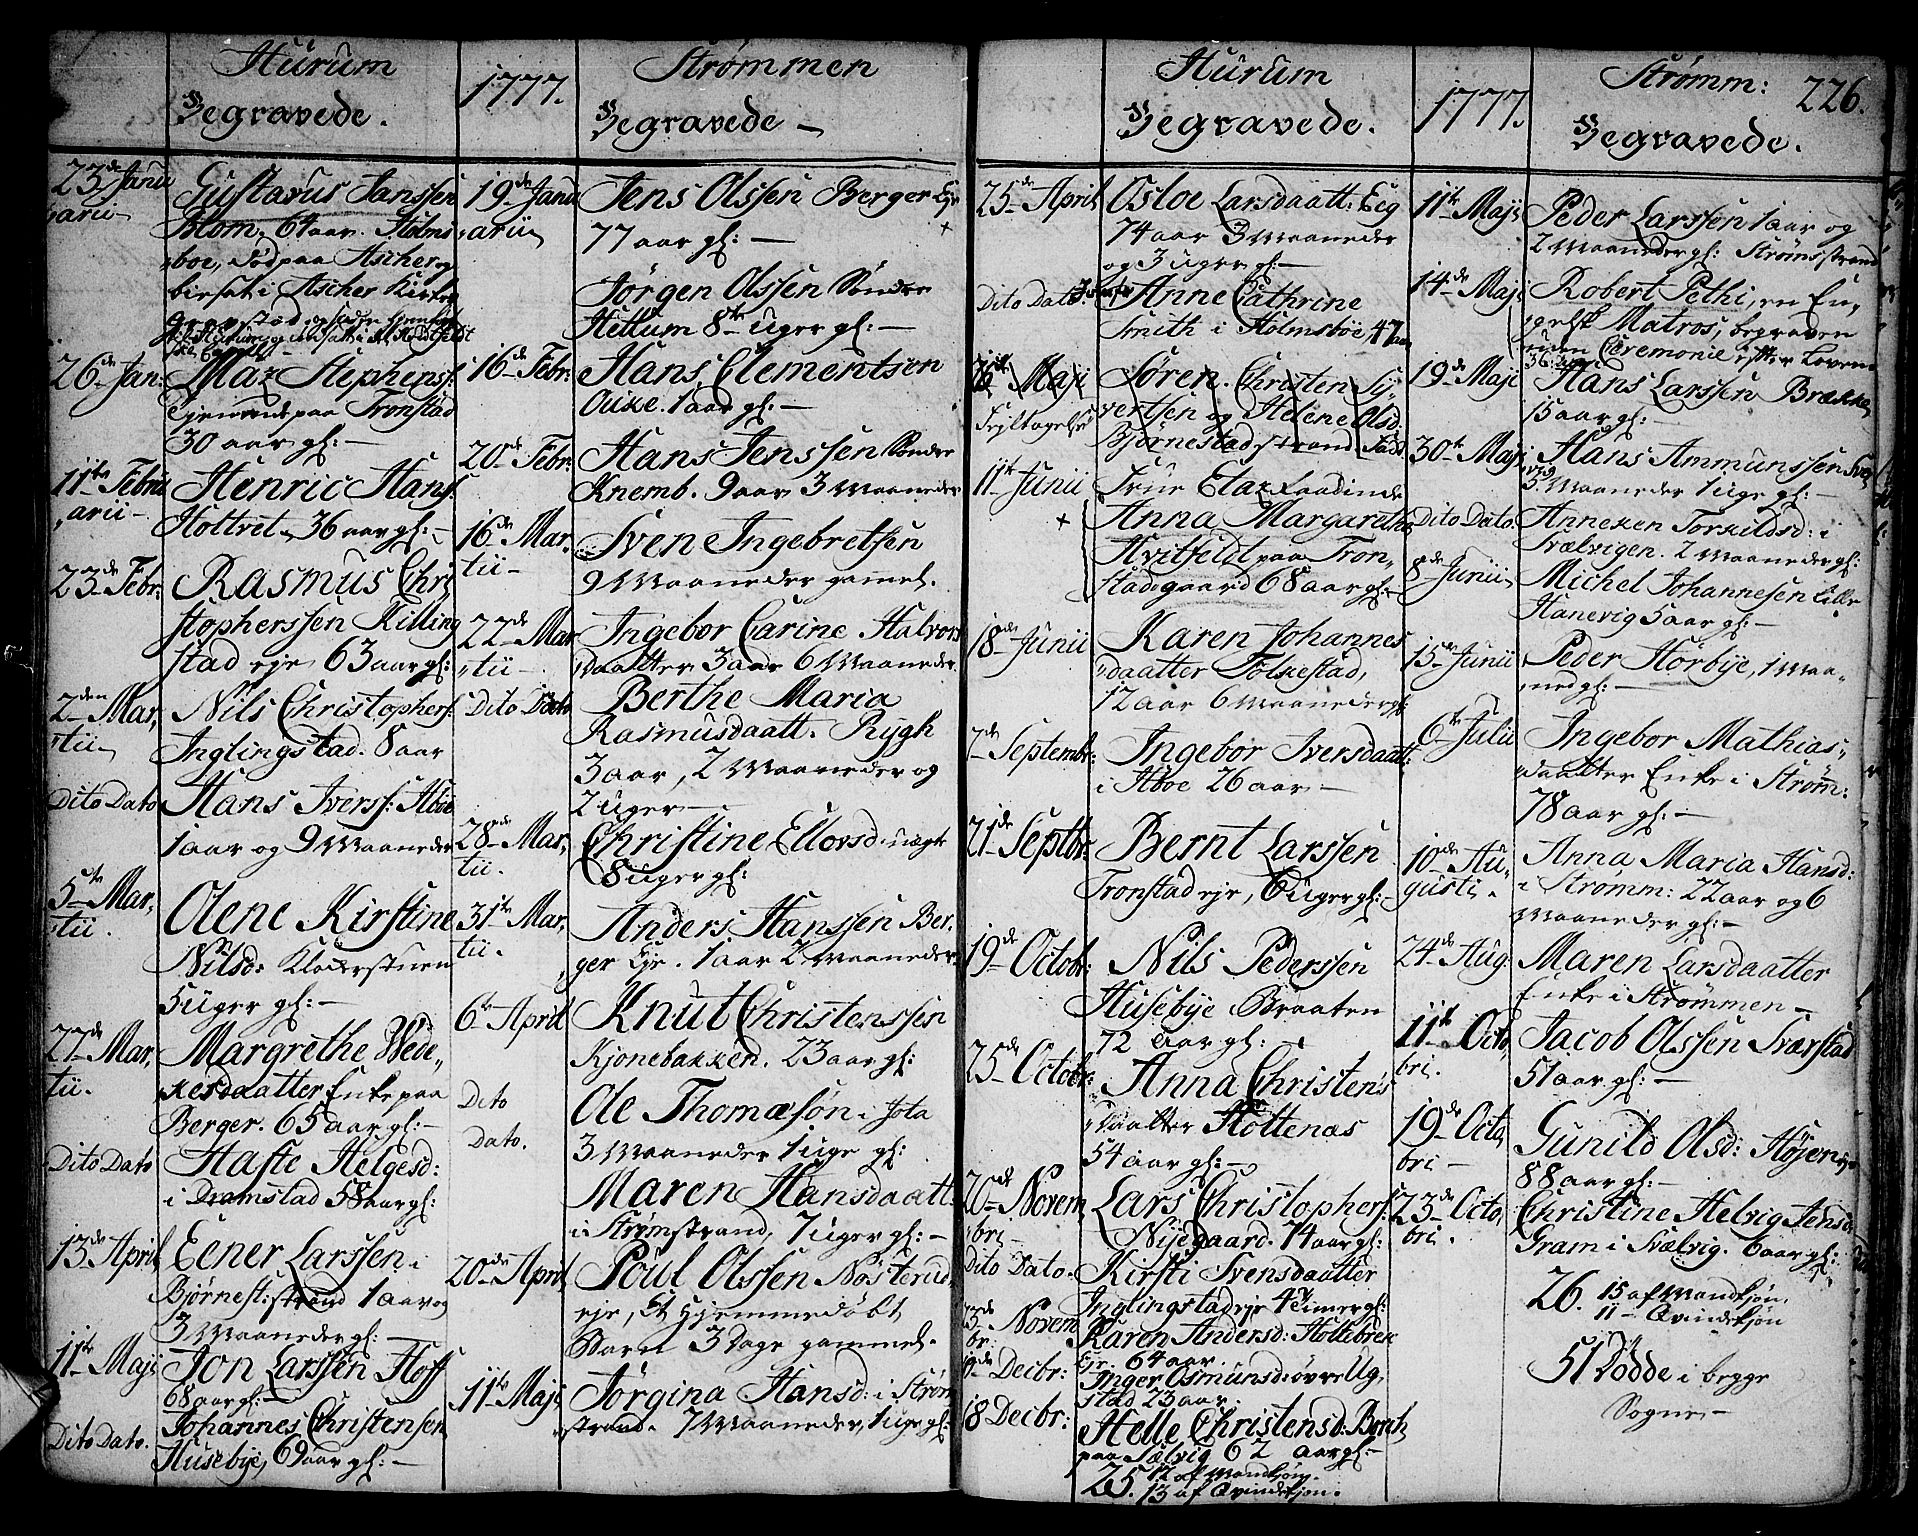 Hurum
Begravede.
23de Janu
arii
Gustavus Janssen
Blom. 64 aar. Holms
boe, død paa Ascher og
birsat i Ascher Kirke
26de Jan:
Maz Stephenss:
tjenende paa Tronstad
30 aar gl:
11te Febru
arii
Henric Hans
Holtvet 36 aar gl:
23de Febr:
Rasmus Chri
stopherssen Killing
stad eje 63 aar gl:
2den Mar,
tii
Nils Christophers:
Inglingstad. 8 aar
Dito Dato
Hans Iverss: Aboe
1 aar og 9 Maaneder
5te Mar,
tii.
Olene Kirstine
Nilsd: Kloderstuen
5 uger gl:
27de Mar,
tii.
Margrethe Wede,
kesdaatter Enke paa
Berger. 65 aar gl:
Dito Dato
Hafte Helgesd:
i Dramstad 58 aar gl:
13de April
Eener Larssen i
Bjørnest: strand 1 aar og
3 Maaneder gl:
11te Maji
Jon Larssen Hoff
68 aar gl:
Dito Dato.
Johannes Christensen
Husebye, 69 aar gl:
1777.
Strømmen
Begravede
19de Janu
arii
Jens Olssen Berger Eje
77 aar gl:
Jørgen Olssen Sønder
Hellum 8te uger gl:
16de Febr:
Hans Clementsen
Ouxe. 1 aar gl:
20de Febr:
Hans Jenssen Sønder
Knemb. 9 aar 3 Maaneder
16de Mar.
tii
Sven Ingebretsen
9 Maaneder gammel.
22de Mar
tii
Ingebor Carine Halvors
daatter 3 aar 6 Maaneder.
Dito Dato
Berthe Maria
Rasmusdaatt. Rygh
3 aar, 2 Maaneder og
2 uger
28de Mar,
tii.
Christine Ellovsd: uægte
8 uger gl:
31te Mar,
tii.
Anders Hanssen Ber,
ger Eje. 1 aar 2 Maaneder
6te April
Knut Christenssen
Kjonebakken. 23 aar gl:
Dito
Dato.
Ole Thomæsøn i Jota
3 Maaneder 1 uge gl:
Maren Hansdaatt:
i Strømstrand, 7 uger gl:
20de April
Poul Olssen Nøsterud
eje, Et hjemmedøbt
Barn 3 dage gammel.
11te Maji
Jørgina Hansd: i Strøm
strand. 7 Maaneder, 1 uge gl:
Hurum
Begravede.
25de April
Osloe Larsdaatt: Eeg
74 aar 3 Maaneder
og 3 uger gl:
Dito Dato
Anne Cathrine
Smith i Holmsboe, 47 aar
11te Maji
Fejltagelse
Søren Christen Sy,
vertsen og Helene Olsd.
Bjørnestad strand
11te Junii
Frue Etaz Raadinde
Anna Margaretha
Hvitfeldt paa Tron,
stad gaard 68 aar gl:
18de Junii
Karen Johannes
daatter Tolkestad,
12 aar 6 Maaneder gl:
7de Septembr:
Ingebor Iversdaatt:
i Aboe 26 aar
21de Septbr:
Bernt Larssen
Tronstad eje, 6 uger gl:
19de Octobr:
Nils Pederssen
Husebye Braaten
72 aar gl:
25de Octobr:
Anna Christens
daatter Holtenas
54 aar gl:
20de Novem
bri
Lars Christophers:
Nijegaard. 74 aar gl:
Dito Dato.
Kirsti Svensdaatter
Inglingstad eje 4 Timer gl:
23de Novem
br:
Karen Andersd: Holtebrek
Eje. 64 aar.
Decbr:
Inger Osmunsd: øvre Ug,
stad 23 aar.
18 Decbr:
Helle Christensd: Borch
paa Sælvig 62 aar gl:
25. 12 af Mandkjøn.
13 af Qvindekjøn.
1777.
Strømm:
226.
Begravede.
11te Maji
Peder Larssen 1 aar og
2 Maaneder gl: Strømsstrand
14de Maji
Robert Pethi, en En,
gelsk Matros, begraven
uden Ceremonie efter Loven
36 aar
19de Maji
Hans Larssen Brække
15 aar gl:
30te Maji
Hans Ammunssen
5. Maaneder 1 uge gl:
Dito Dato.
Anneken Torkildsd: i
Svælvigen. 2 Maaneder gl:
8de Junii
Michel Johannesen Lille
Hanevig 5 aar gl:
15de Junii
Peder Hørbye, 1 Maa,
ned gl:
6te Julii
Ingebor Mathias,
daatter Enke i Strøm:
78 aar gl:
10de Au,
gusti.
Anna Maria Hansd:
i Strømm: 22 aar og 6
Maaneder gl:
24de Aug:
Maren Larsdaatter
Enke i Strømmen
11te Octo
bri.
Jacob Olssen Sværstad
51 aar gl:
19de Octo
bri
Gunild Olsd: Højen
88 aar gl:
23de Octo,
bri.
Christine Helvig Jensd:
Gram i Svælvig. 6 aar gl:
26. 15 af Mandkjøn.
11 Qvindekjøn
51 Dødde i begge
Sogne